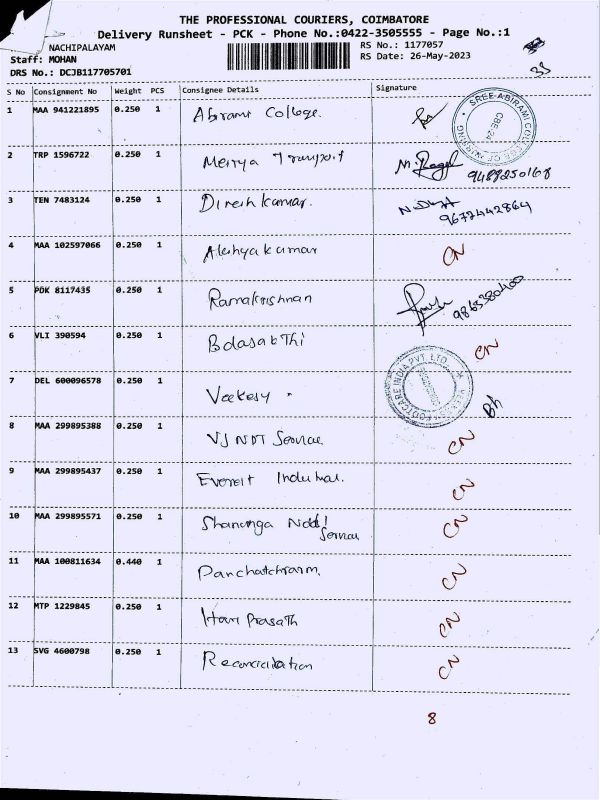 THE PROFESSIONAL COURIERS, COIMBATORE
Delivery Runsheet - PCK - Phone No.:0422-3505555 - Page No.:1
NACHIPALAYAM
RS No.: 1177057
Staff: MOHAN
RS Date: 26-May-2023
DRS No.: DCJB117705701
33
S No Consignment No Weight PCS Consignee Details Signature
1 MAA 941221895 0.250 1 Abirami College.
SREE ABIRAMI COLLEGE OF NURSING
CBE-24
2 TRP 1596722 0.250 1 Transport
9488250168
3 TEN 7483124 0.250 1 Dinesh kumar.
9677442864
4 MAA 102597066 0.250 1 Akshya kumar CN
5 PDK 8117435 0.250 1 Ramakrishnan
9865380400
6 VLI 390594 0.250 1 BalasakThi CN
FOOTCARE INDIA PVT. LTD.
7 DEL 600096578 0.250 1 Veekesy
8 MAA 299895388 0.250 1 VJ NDT Service CN
9 MAA 299895437 0.250 1 Everest Industrial. CN
10 MAA 299895571 0.250 1 CN
Service
11 MAA 100811634 0.440 1 Panchatchram. CN
12 MTP 1229845 0.250 1 Hari PrasaTh CN
13 SVG 4600798 0.250 1 Reconciliation CN
8